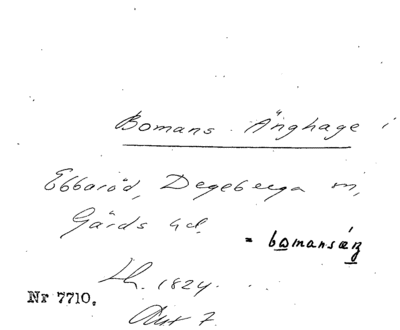 Bomans Änghage i
Ebbaröd, Degeberga sn,
Gärds hd.
= bomansæŋ
Lh. 1824.
Nr 7710.
Akt 7